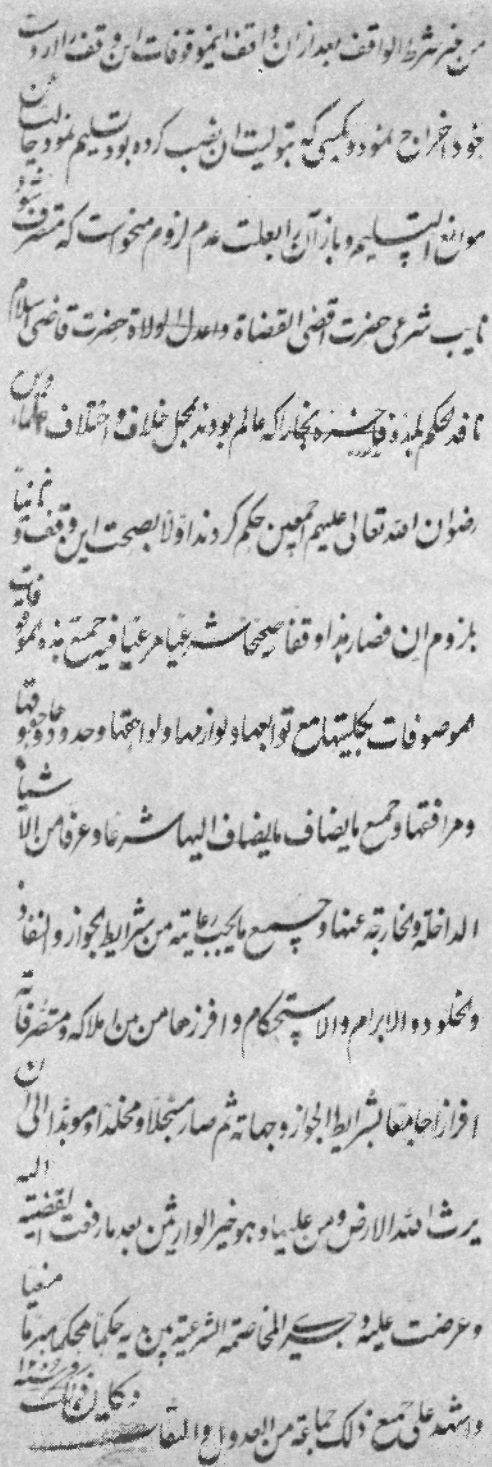 من غیر شرط الواقف بعد ازان واقف اینموقوفات این وقف را از دست
خود اخراج نمود و بکسی که بتولیت ان نصب کرده بود تسلیم نمود خالیا عن
موانع التسلیم و باز آن را بعلت عدم لزوم میخواست که متصرف شود
نایب شرعی حضرت اقضی القضاة و اعدل الولاة حضرت قاضی اسلام
نافذ الحکم بلده فاخره بخارا که عالم بودند بمحل خلاف و اختلاف علماء دین
رضوان الله تعالی علیهم اجمعین حکم کردند اولاً بصحت این وقف و ثانیاً
بلزوم ان فصار هذا وقفاً صحیحاً شرعیاً مرعیاً فیه جمیع هذه الموقوفات
الموصوفات بکلیتها مع توابعها و لوازمها و لواحقها و حدودها و حقوقها
و مرافقها و جمیع ما یضاف مایضاف الیها شرعاً و عرفاً من الأشیاء
الداخلة و الخارجة عنها و جمیع ما یجب رعایته من شرایط الجواز و النفاذ
و الخلود و الابرام و الاستحکام و افرزها من من املاکه و متصرفاته
افرازاً جامعاً لشرایط الجواز و جهاته ثم صار مسجلاً و مخلداً و موبداً الی ان
یرث الله الارض و من علیها و هو خیر الوارثین بعد ما رفعت القضیة الیه
و عرضت علیه و جری المخاصمة الشرعیة بین یدیه حکماً محکماً مبرماً
و اشهد علی جمیع ذلک جماعة من العدول و الثقات و کان ذلک